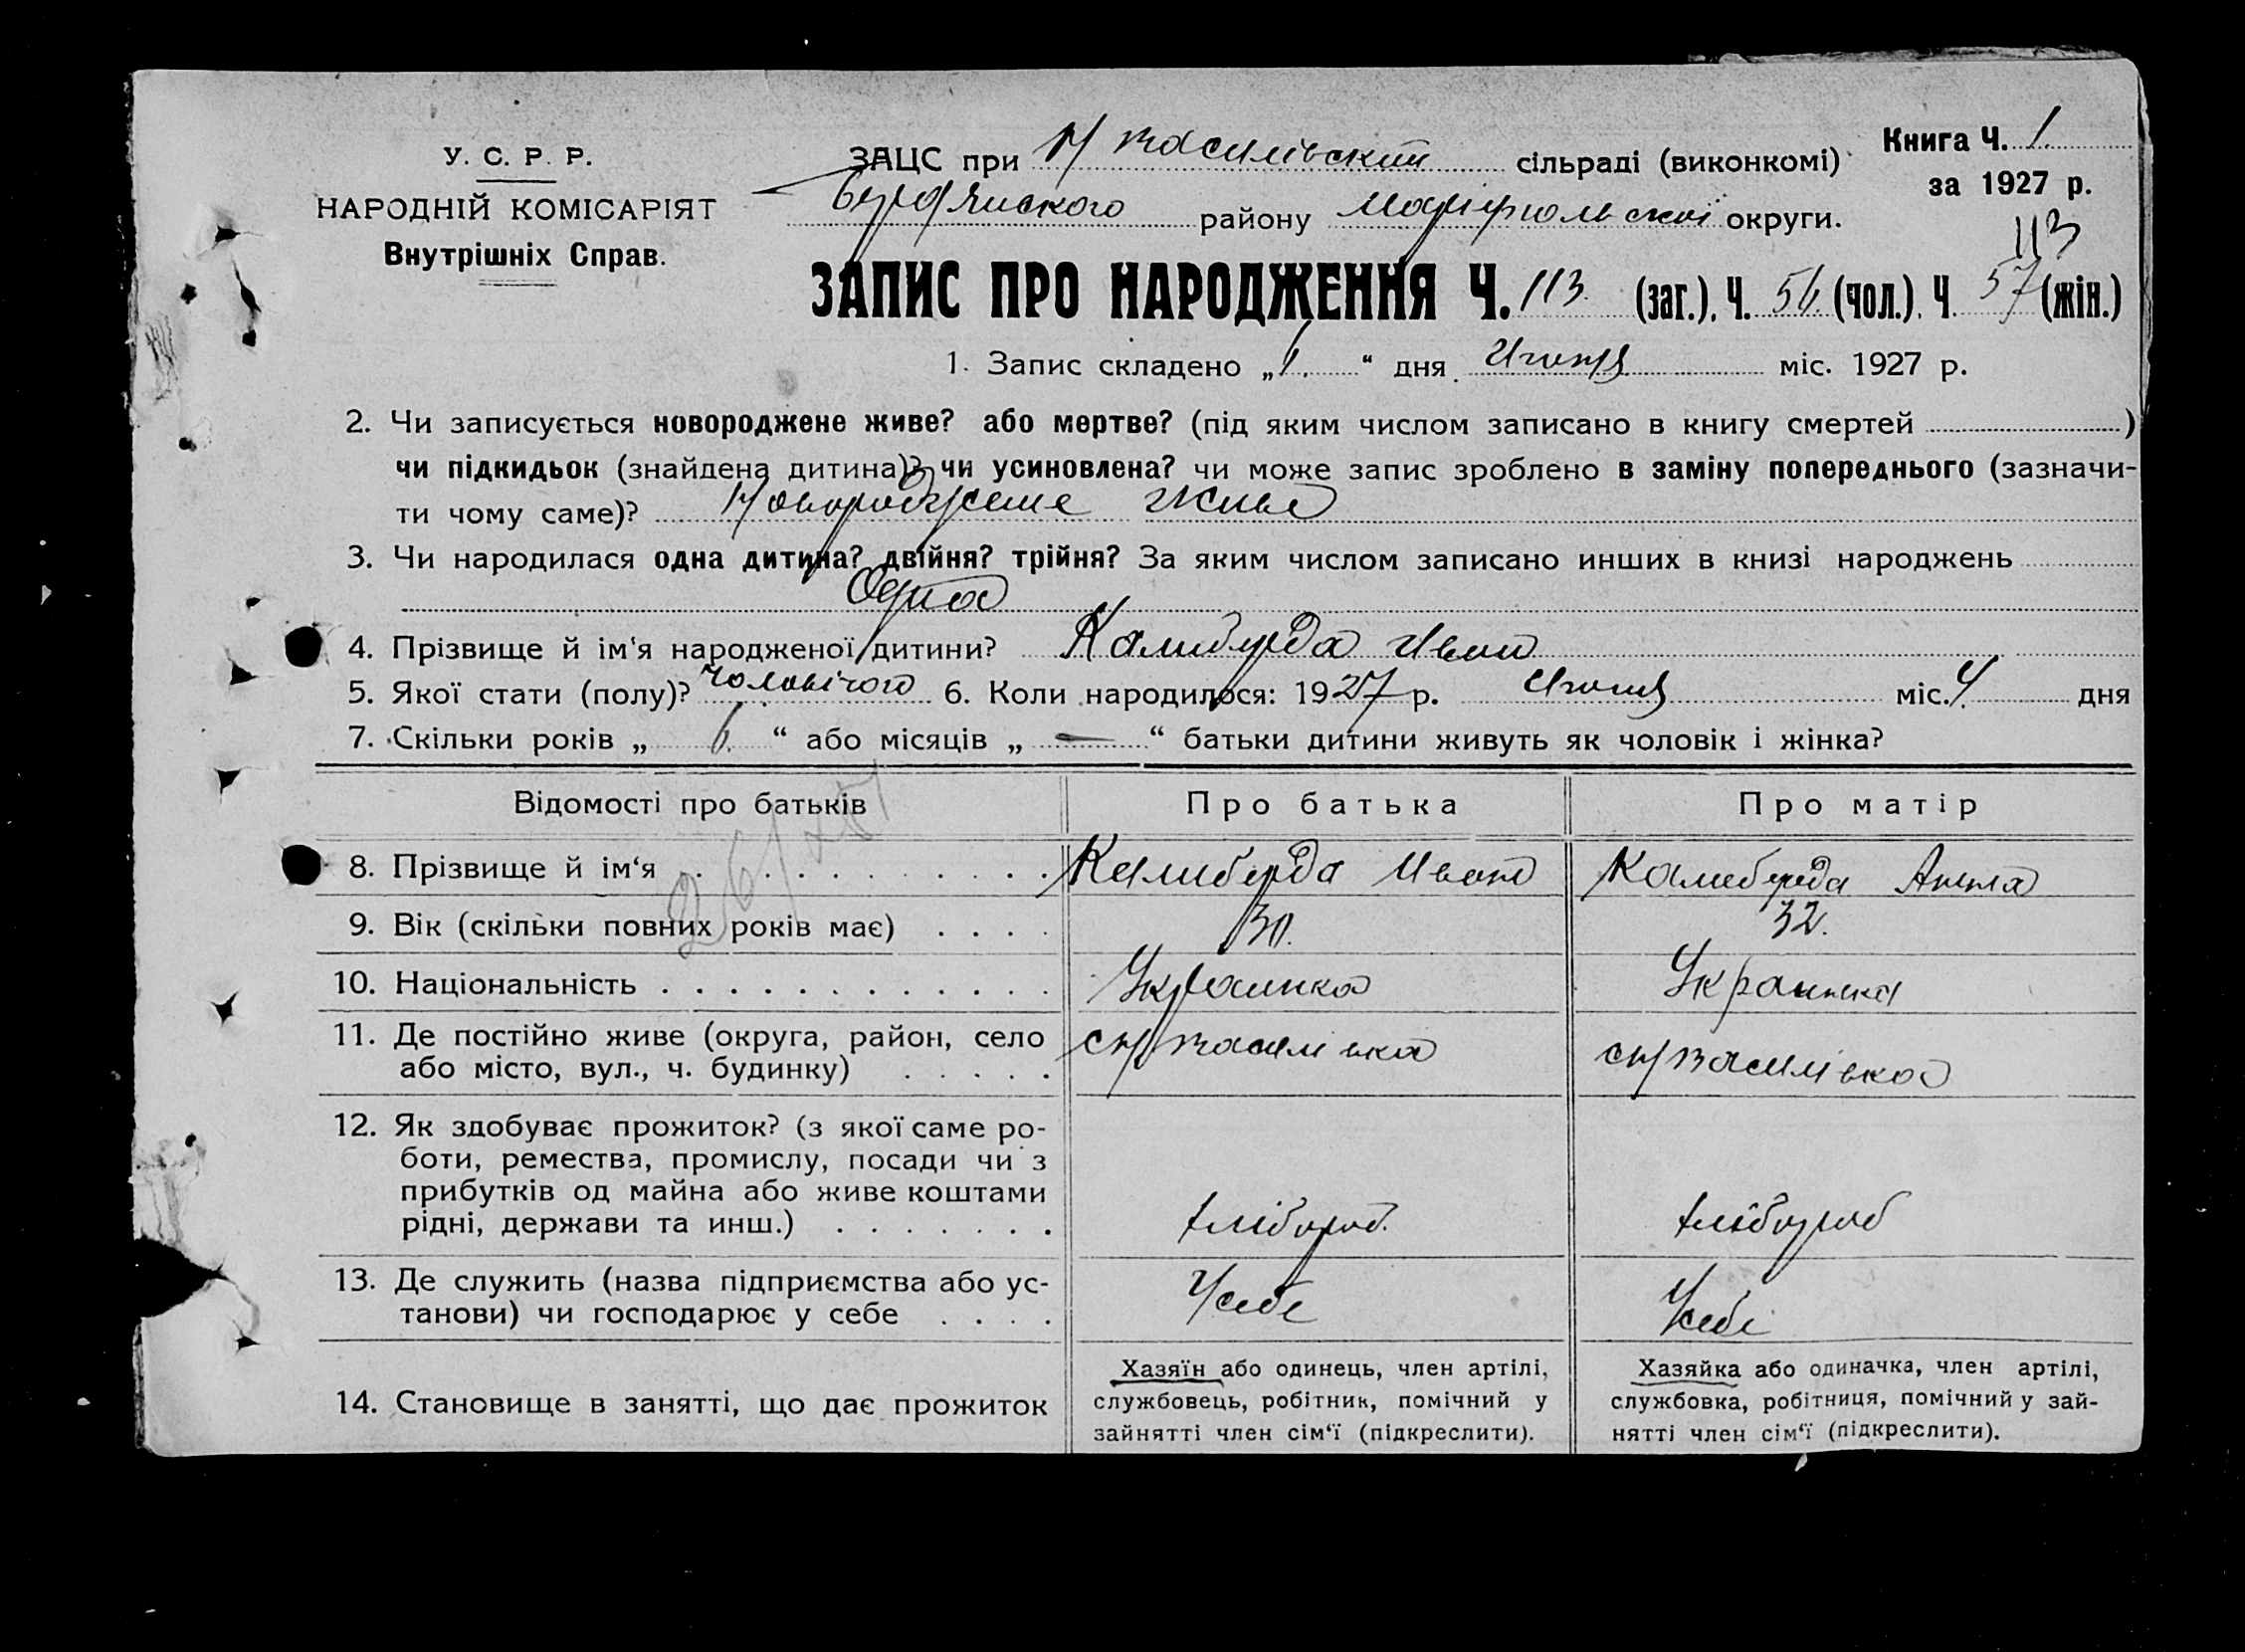 У. С. Р. Р.
НАРОДНІЙ КОМІСАРІЯТ
Внутрішніх Справ.
ЗАЦС при Н василівский сільраді (виконкомі)
Бердянского району Маріупольскої округи.
Книга Ч. 1.
за 1927 р.
113
ЗАПИС ПРО НАРОДЖЕННЯ Ч. 113 (заг.), Ч. 56 (чол.), Ч. 57 (жін.)
1. Запис складено „6.“ дня Июня міс. 1927 р.
2. Чи записується новороджене живе? або мертве? (під яким числом записано в книгу смертей )
чи підкидьок (знайдена дитина)? чи усиновлена? чи може запис зроблено в заміну попереднього (зазначи-
ти чому саме)? Новороджене живе
3. Чи народилася одна дитина? двійня? трійня? За яким числом записано инших в книзі народжень
Одна
4. Прізвище й ім'я народженої дитини? Калиберда Иван
5. Якої стати (полу)? Чоловічого 6. Коли народилося: 1927 р. Июня міс. 4. дня
7. Скільки років „ 6. “ або місяців „ — “ батьки дитини живуть як чоловік і жінка?
Відомості про батьків Про батька Про матір
8. Прізвище й ім'я Калиберда Иван Калиберда Анна
9. Вік (скільки повних років має) 30. 32.
10. Національність Украинка Украинка
11. Де постійно живе (округа, район, село
або місто, вул., ч. будинку) с н/василівка с н/василівка
12. Як здобуває прожиток? (з якої саме ро-
боти, ремества, промислу, посади чи з
прибутків од майна або живе коштами
рідні, держави та инш.) хлібороб. хлібороб
13. Де служить (назва підприємства або ус-
танови) чи господарює у себе У себе У себе
14. Становище в занятті, що дає прожиток
Хазяїн або одинець, член артілі,
службовець, робітник, помічний у
зайнятті член сім'ї (підкреслити).
Хазяйка або одиначка, член артілі,
службовка, робітниця, помічний у зай-
нятті член сім'ї (підкреслити).